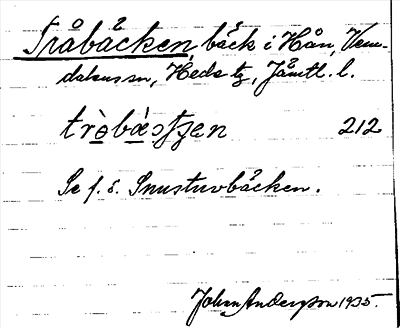 Tråbäcken, bäck i Hån, Vem-
dalens sn, Heds tg, Jämtl. l.
trò̱bæ̱stʃen 212
Se f. ö. Snustuvbäcken.
Johan Anderson 1935.